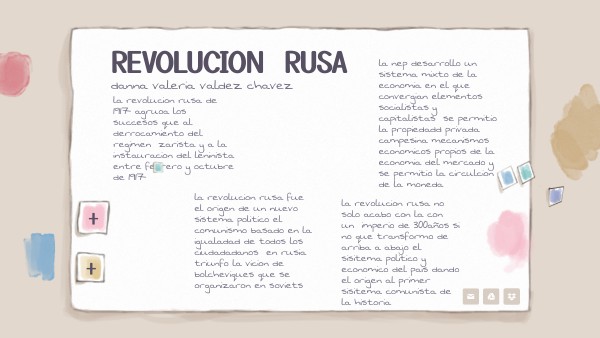 REVOLUCION RUSA
danna valeria valdez chavez
la revolucion rusa de
1917 agrupa los
succesos que al
derrocamiento del
regimen zarista y a la
instauracion del leninista
entre febrero y octubre
de 1917
la nep desarrollo un
sistema mixto de la
economia en el que
convergian elementos
socialistas y
capitalistas se permitio
la propiedadd privada
campesina mecanismos
economicos propios de la
economia del mercado y
se permitio la circulcion
de la moneda
la revolucion rusa fue
el origen de un nuevo
sistema politico el
comunismo basado en la
igualadad de todos los
ciudadadanos en rusia
triunfo la vicion de
bolcheviques que se
organizaron en soviets
la revolucion rusa no
solo acabo con la con
un imperio de 300años si
no que transformo de
arriba a abajo el
sisitema politico y
economico del pais dando
el origan al primer
sisitema comunista de
la historia